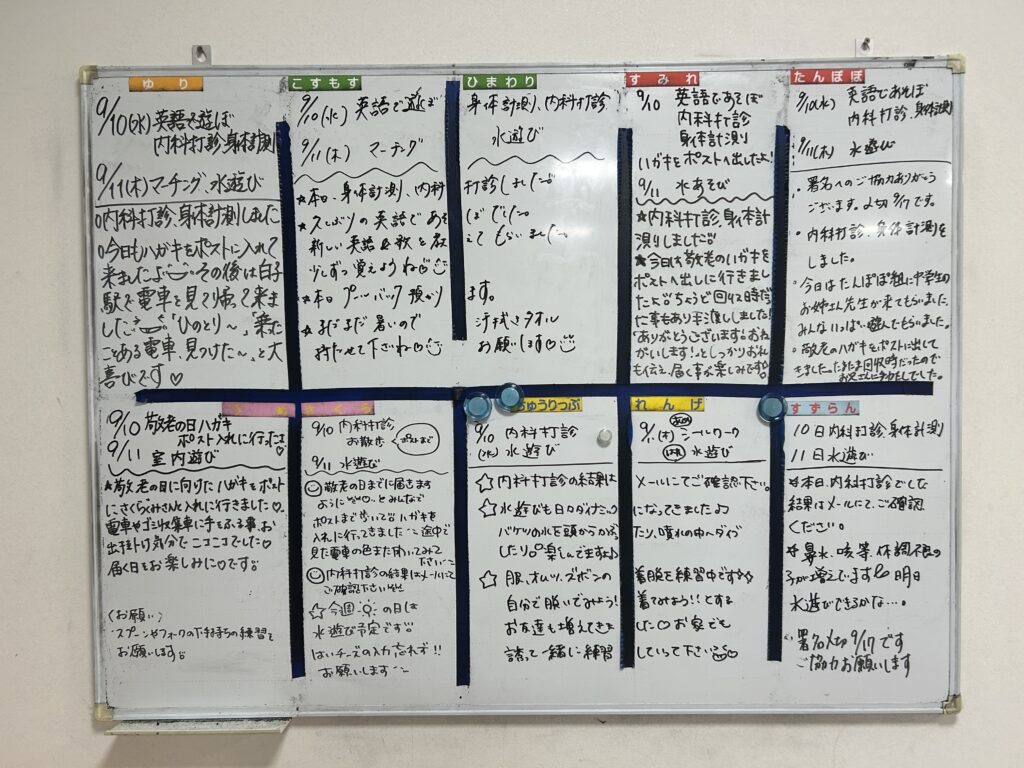 ゆり
9/10(水)英語で遊ぼ
内科打診、身体計測
9/11(木)マーチング、水遊び
○内科打診、身体計測しました
○今日もハガキをポストに入れて
来ましたよ その後は白子
駅で電車を見て
ました 「ひのとり〜」「乗った
ことある電車、見つけた〜」と大
喜びです♡
こすもす
9/10(水) 英語で遊ぼ
9/11(木) マーチング
★本日、身体計測、内科
★久しぶりの英語であそ
新しい英語の歌を教
少しずつ覚えようね♡
★本日 プールバック 預かり
★まだまだ暑いので
持たせて下さいね♡
ひまわり
身体計測、内科打診
水遊び
打診しました。
ぼでした。
えてもらいました。
ます。
汗拭きタオル
お願いします♡
すみれ
9/10 英語であそぼ
内科打診
身体計測
ハガキをポストへ出したよ!
9/11 水あそび
★内科打診、身体計
測りしました
★今日は敬老のハガキを
ポストへ出しに行きまし
たよ ちょうど回収時だっ
た事もあり手渡ししました!
「ありがとうございます。おね
がいします!」としっかりお礼
も伝え、届く事が楽しみです。
たんぽぽ
9/10(水) 英語であそぼ
内科打診、身体計測
9/11(木) 水遊び
・署名へのご協力ありがとう
ございます。〆切 9/17です。
・内科打診、身体計測を
しました。
・今日はたんぽぽ組に中学生の
お姉さん先生が来てもらいました。
みんないっぱい遊んでもらいました。
・敬老のハガキをポストに出して
きました。たまたま回収時だったので
お兄さんに手わたしでした。
うめ
9/10 敬老の日ハガキ
ポスト入れに行ったよ
9/11 室内遊び
★敬老の日に向けたハガキをポスト
にさくらぐみさんと入れに行きました♡
電車やゴミ収集車に手をふる事、お
出掛け気分でニコニコでした♡
届く日をお楽しみに♡です。
(お願い)
スプーンやフォークの下手持ちの練習を
お願いします。
さくら
9/10 内科打診
お散歩 ポストまで
9/11 水遊び
敬老の日までに届きます
ように とみんなで
ポストまで歩いて ハガキを
入れに行ってきました 途中で
見た電車の色また聞いてみて
下さい
内科打診の結果はメールにて
ご確認下さい
☆今週 の日は
水遊び予定です。
はいチーズの入力忘れず!!
お願いします
ちゅうりっぷ
9/10 内科打診
(水) 水遊び
☆内科打診の結果は
☆水遊びも日々ダイナミック
バケツの水を頭からかぶっ
したり。楽しんでますよ♪
☆服、オムツ、ズボンの
自分で脱いでみよう!
お友達も増えてきま
誘って一緒に練習
れんげ
(木) シールワーク
水遊び
メールにてご確認下さい。
になってきました♪
たり、噴水の中へダイブ
着脱を練習中です☆
着てみよう!!とする
した♡お家でも
していって下さい♡
すずらん
10日内科打診、身体計測
11日水遊び
☆本日、内科打診でした
結果はメールにて、ご確認
ください。
☆鼻水、咳等、体調不良の
子が増えています 明日
水遊びできるかな…。
署名〆切 9/17 です
ご協力お願いします